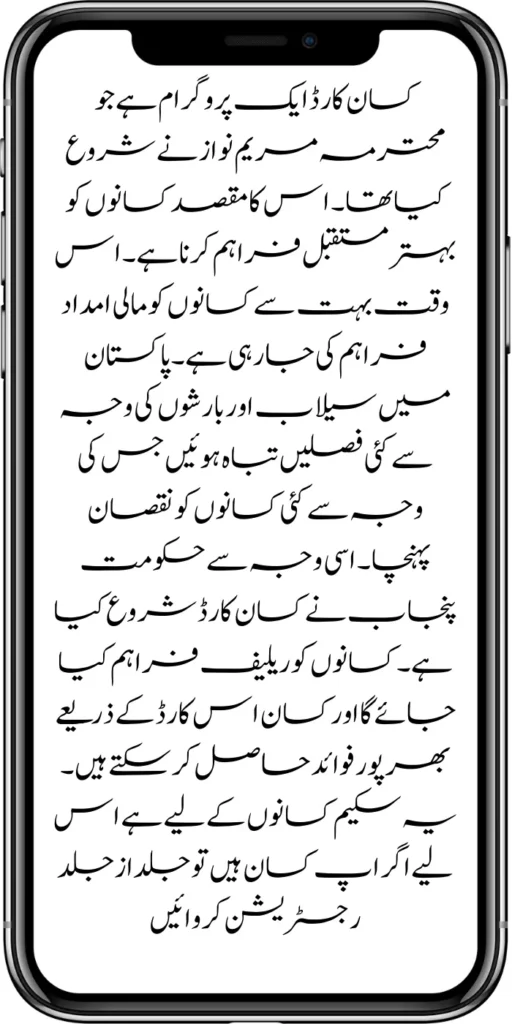 کسان کارڈ ایک پروگرام ہے جو
محترمہ مریم نواز نے شروع
کیا تھا۔ اس کا مقصد کسانوں کو
بہتر مستقبل فراہم کرنا ہے۔ اس
وقت بہت سے کسانوں کو مالی امداد
فراہم کی جا رہی ہے۔ پاکستان
میں سیلاب اور بارشوں کی وجہ
سے کئی فصلیں تباہ ہوئیں جس کی
وجہ سے کئی کسانوں کو نقصان
پہنچا۔ اسی وجہ سے حکومت
پنجاب نے کسان کارڈ شروع کیا
ہے۔ کسانوں کو ریلیف فراہم کیا
جائے گا اور کسان اس کارڈ کے ذریعے
بھرپور فوائد حاصل کر سکتے ہیں۔
یہ سکیم کسانوں کے لیے ہے اس
لیے اگر اپ کسان ہیں تو جلد از جلد
رجسٹریشن کروائیں